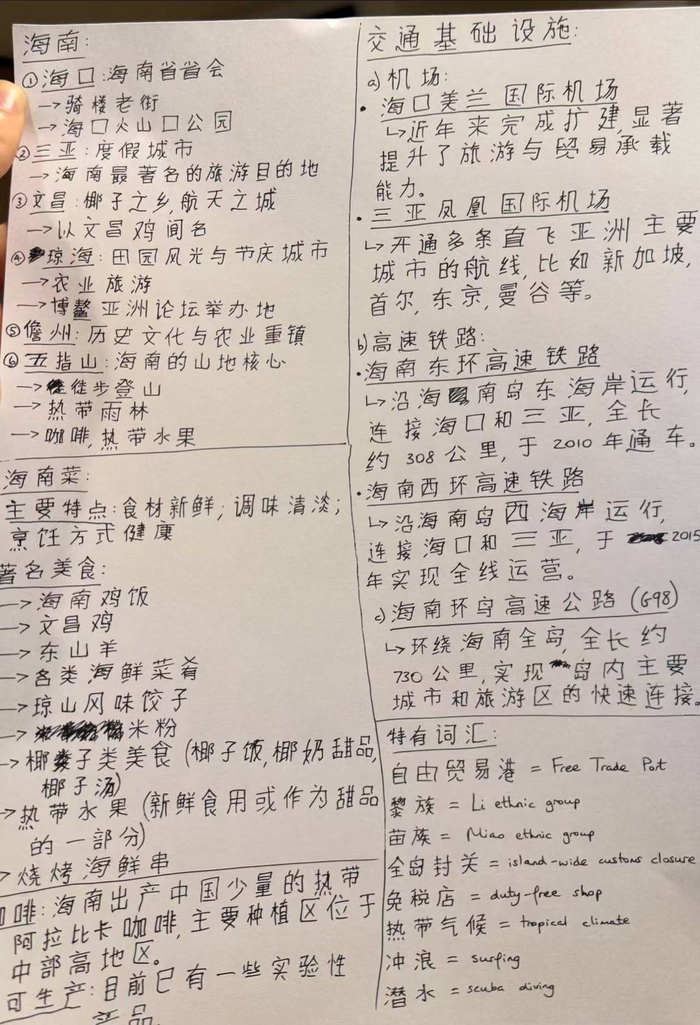 海南:
①海口:海南省省会
→骑楼老街
→海口火山口公园
②三亚:度假城市
→海南最著名的旅游目的地
③文昌:椰子之乡,航天之城
→以文昌鸡闻名
④琼海:田园风光与节庆城市
→农业旅游
→博鳌亚洲论坛举办地
⑤儋州:历史文化与农业重镇
⑥五指山:海南的山地核心
→徒步登山
→热带雨林
→咖啡,热带水果
海南菜:
主要特点:食材新鲜;调味清淡;
烹饪方式健康
著名美食:
→海南鸡饭
→文昌鸡
→东山羊
→各类海鲜菜肴
→琼山风味饺子
→米粉
→椰子类美食(椰子饭,椰奶甜品,
椰子汤)
→热带水果(新鲜食用或作为甜品
的一部分)
→烧烤海鲜串
咖啡:海南出产中国少量的热带
阿拉比卡咖啡,主要种植区位于
中部高地区。
可生产:目前已有一些实验性
产品。
交通基础设施:
a)机场:
·海口美兰国际机场
↳近年来完成扩建,显著
提升了旅游与贸易承载
能力。
·三亚凤凰国际机场
↳开通多条直飞亚洲主要
城市的航线,比如新加坡,
首尔,东京,曼谷等。
b)高速铁路:
·海南东环高速铁路
↳沿海南岛东海岸运行,
连接海口和三亚,全长
约308公里,于2010年通车。
·海南西环高速铁路
↳沿海南岛西海岸运行,
连接海口和三亚,于2015
年实现全线运营。
c)海南环岛高速公路(G98)
↳环绕海南全岛,全长约
730公里,实现岛内主要
城市和旅游区的快速连接。
特有词汇:
自由贸易港 = Free Trade Port
黎族 = Li ethnic group
苗族 = Miao ethnic group
全岛封关 = island-wide customs closure
免税店 = duty-free shop
热带气候 = tropical climate
冲浪 = surfing
潜水 = scuba diving